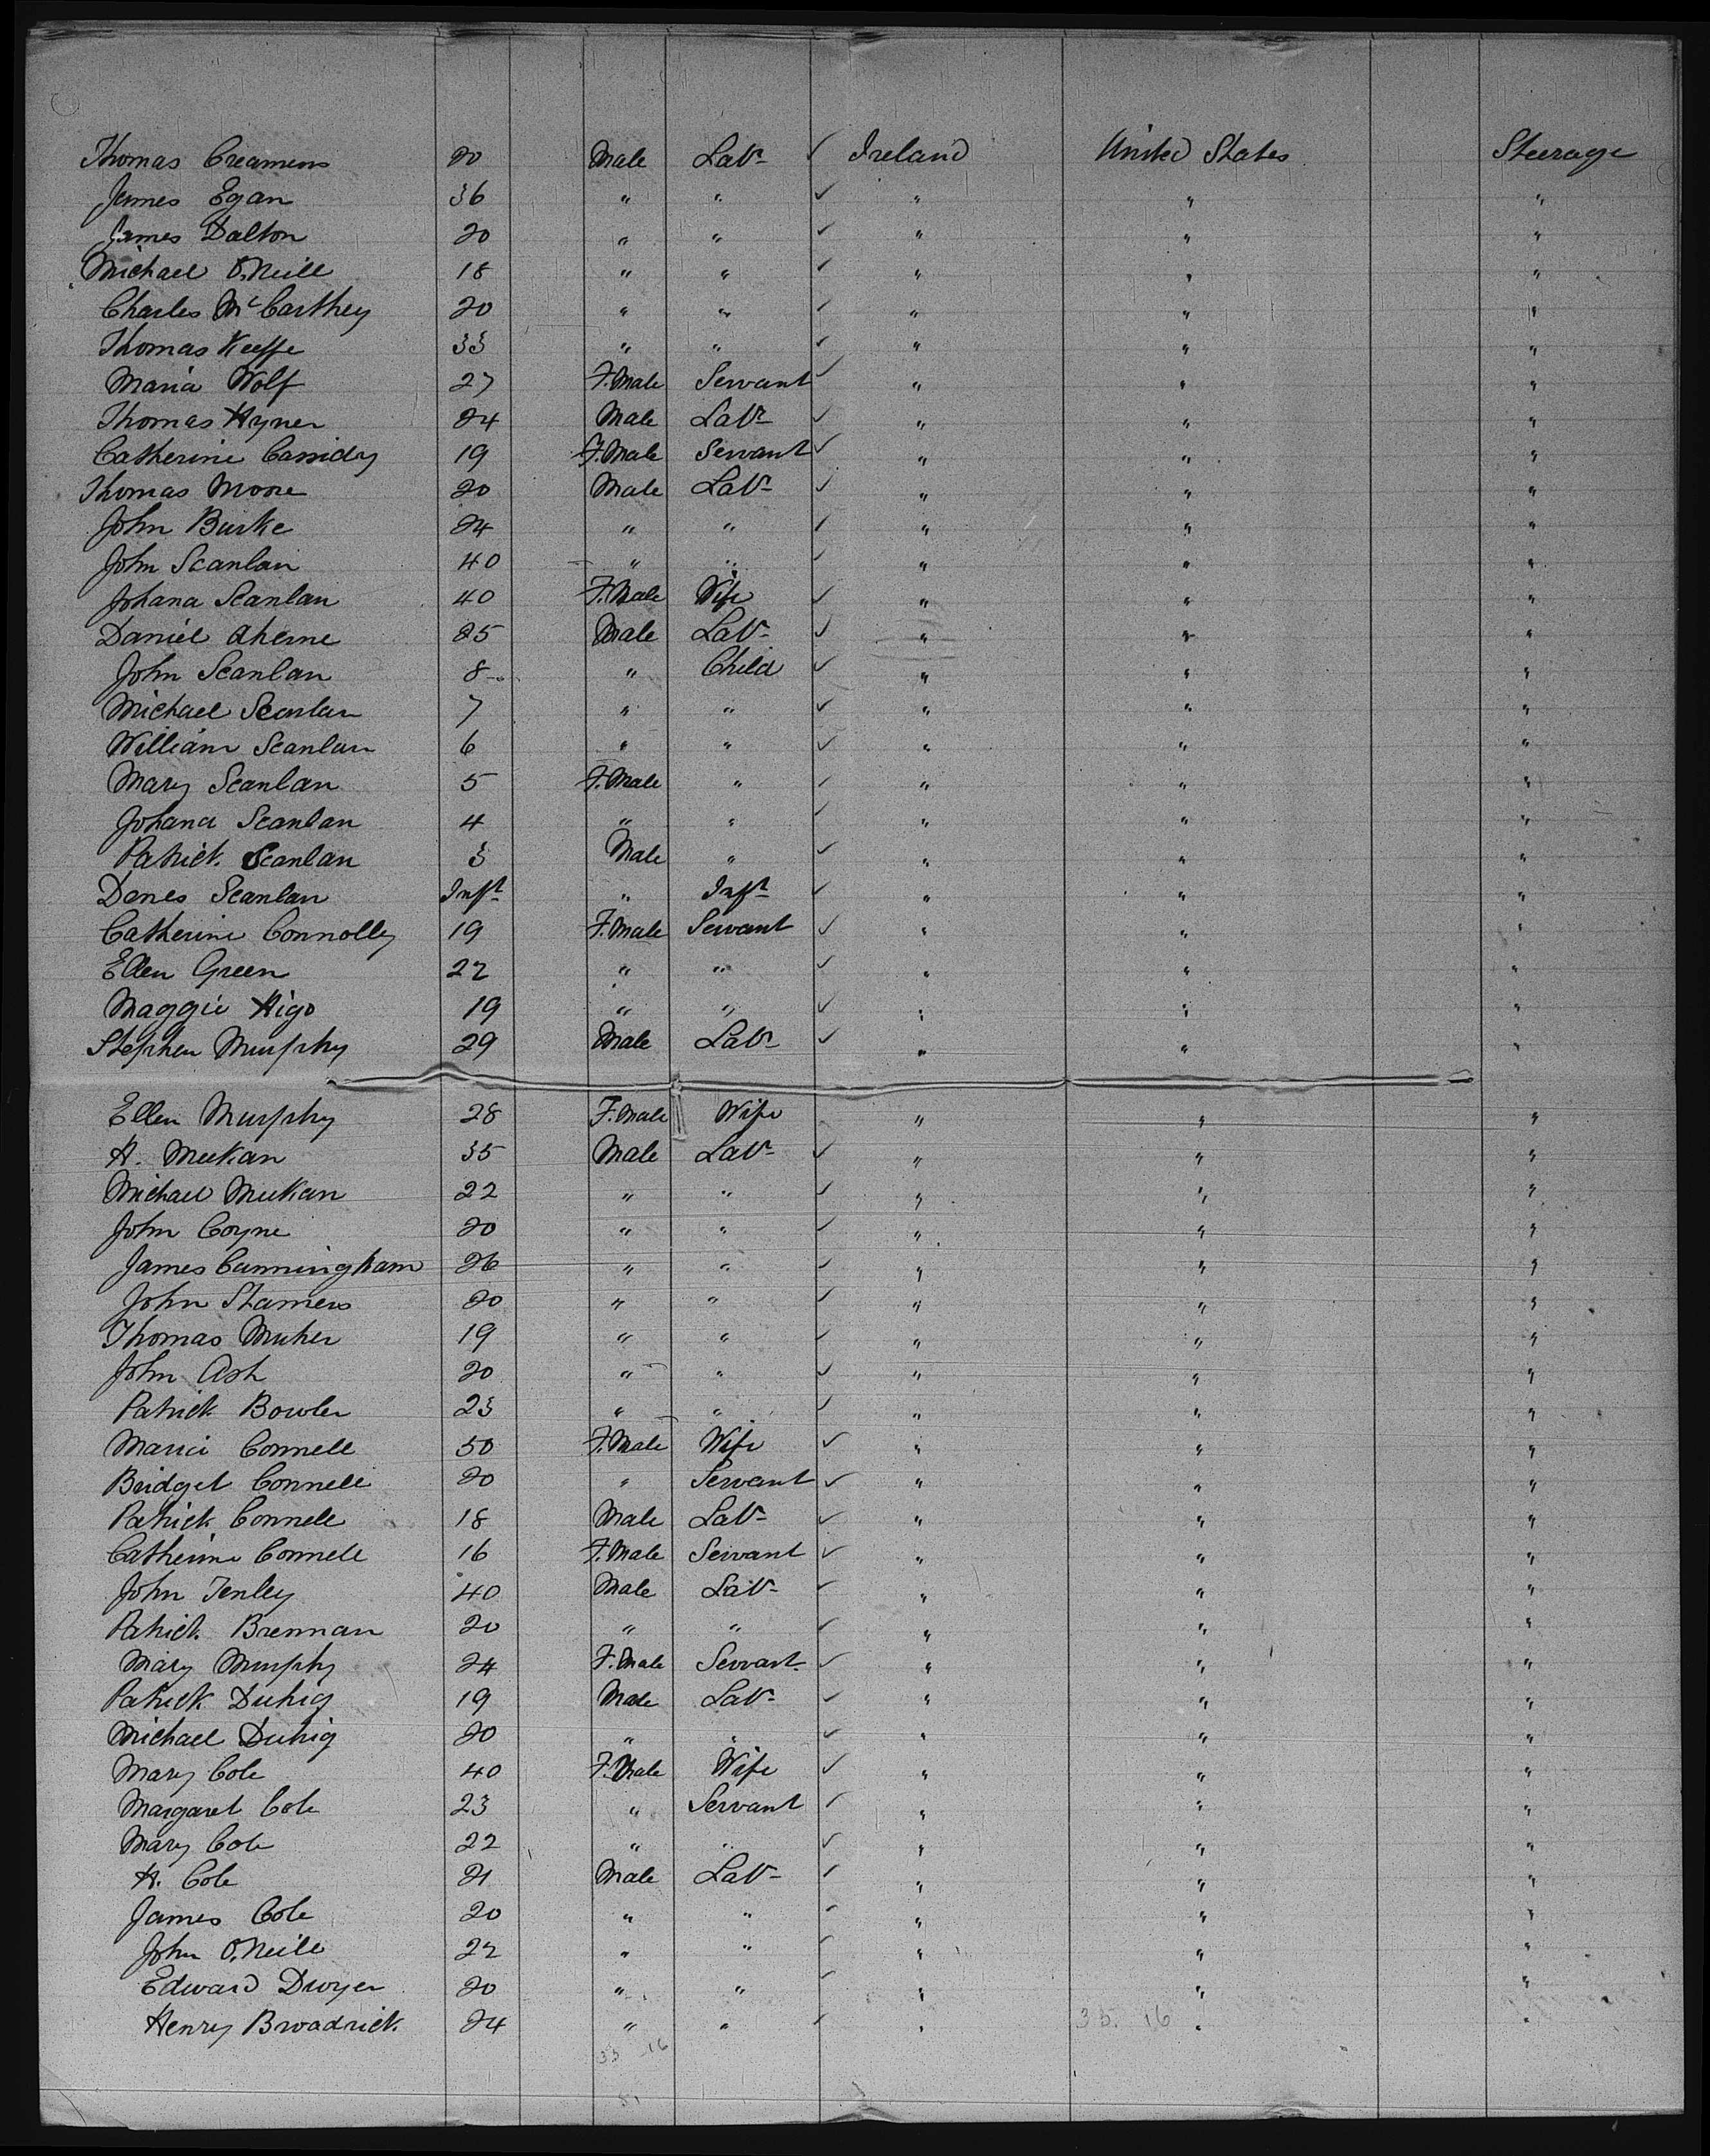 Thomas Creamens 20 Male Labr ✓ Ireland United States Steerage
James Egan 36 " " ✓ " " "
James Dalton 20 " " ✓ " " "
Michael O'Neill 18 " " ✓ " " "
Charles McCarthey 20 " " ✓ " " "
Thomas Keeffe 33 " " ✓ " " "
Maria Wolf 27 F.Male Servant ✓ " " "
Thomas Hyner 24 Male Labr ✓ " " "
Catherine Cassidy 19 F.Male Servant ✓ " " "
Thomas Moore 20 Male Labr ✓ " " "
John Burke 24 " " ✓ " " "
John Scanlan 40 " " ✓ " " "
Johana Scanlan 40 F.Male Wife ✓ " " "
Daniel Aherne 25 Male Labr ✓ " " "
John Scanlan 8 " Child ✓ " " "
Michael Scanlan 7 " " ✓ " " "
William Scanlan 6 " " ✓ " " "
Mary Scanlan 5 F.Male " ✓ " " "
Johana Scanlan 4 " " ✓ " " "
Patrick Scanlan 3 Male " ✓ " " "
Denes Scanlan Inft " Inft ✓ " " "
Catherine Connolly 19 F.Male Servant ✓ " " "
Ellen Green 22 " " ✓ " " "
Maggie Higo 19 " " ✓ " " "
Stephen Murphy 29 Male Labr ✓ " " "
Ellen Murphy 28 F.Male Wife " " "
H. Meekan 35 Male Labr ✓ " " "
Michael Meekan 22 " " ✓ " " "
John Coyne 20 " " ✓ " " "
James Cunningham 26 " " ✓ " " "
John Stamers 20 " " ✓ " " "
Thomas Muher 19 " " ✓ " " "
John Ash 20 " " ✓ " " "
Patrick Bowler 23 " " ✓ " " "
Maria Connell 50 F.Male Wife ✓ " " "
Bridget Connell 20 " Servant ✓ " " "
Patrick Connell 18 Male Labr ✓ " " "
Catherine Connell 16 F.Male Servant ✓ " " "
John Tenley 40 Male Labr ✓ " " "
Patrick Brennan 20 " " ✓ " " "
Mary Murphy 24 F.Male Servant ✓ " " "
Patrick Duhig 19 Male Labr ✓ " " "
Michael Duhig 20 " " ✓ " " "
Mary Cole 40 F.Male Wife ✓ " " "
Margaret Cole 23 " Servant ✓ " " "
Mary Cole 22 " " ✓ " " "
H. Cole 21 Male Labr ✓ " " "
James Cole 20 " " ✓ " " "
John O'Neill 22 " " ✓ " " "
Edward Dwyer 20 " " ✓ " " "
Henry Broadrick 24 " " ✓ " 35. 16 " "
35 16